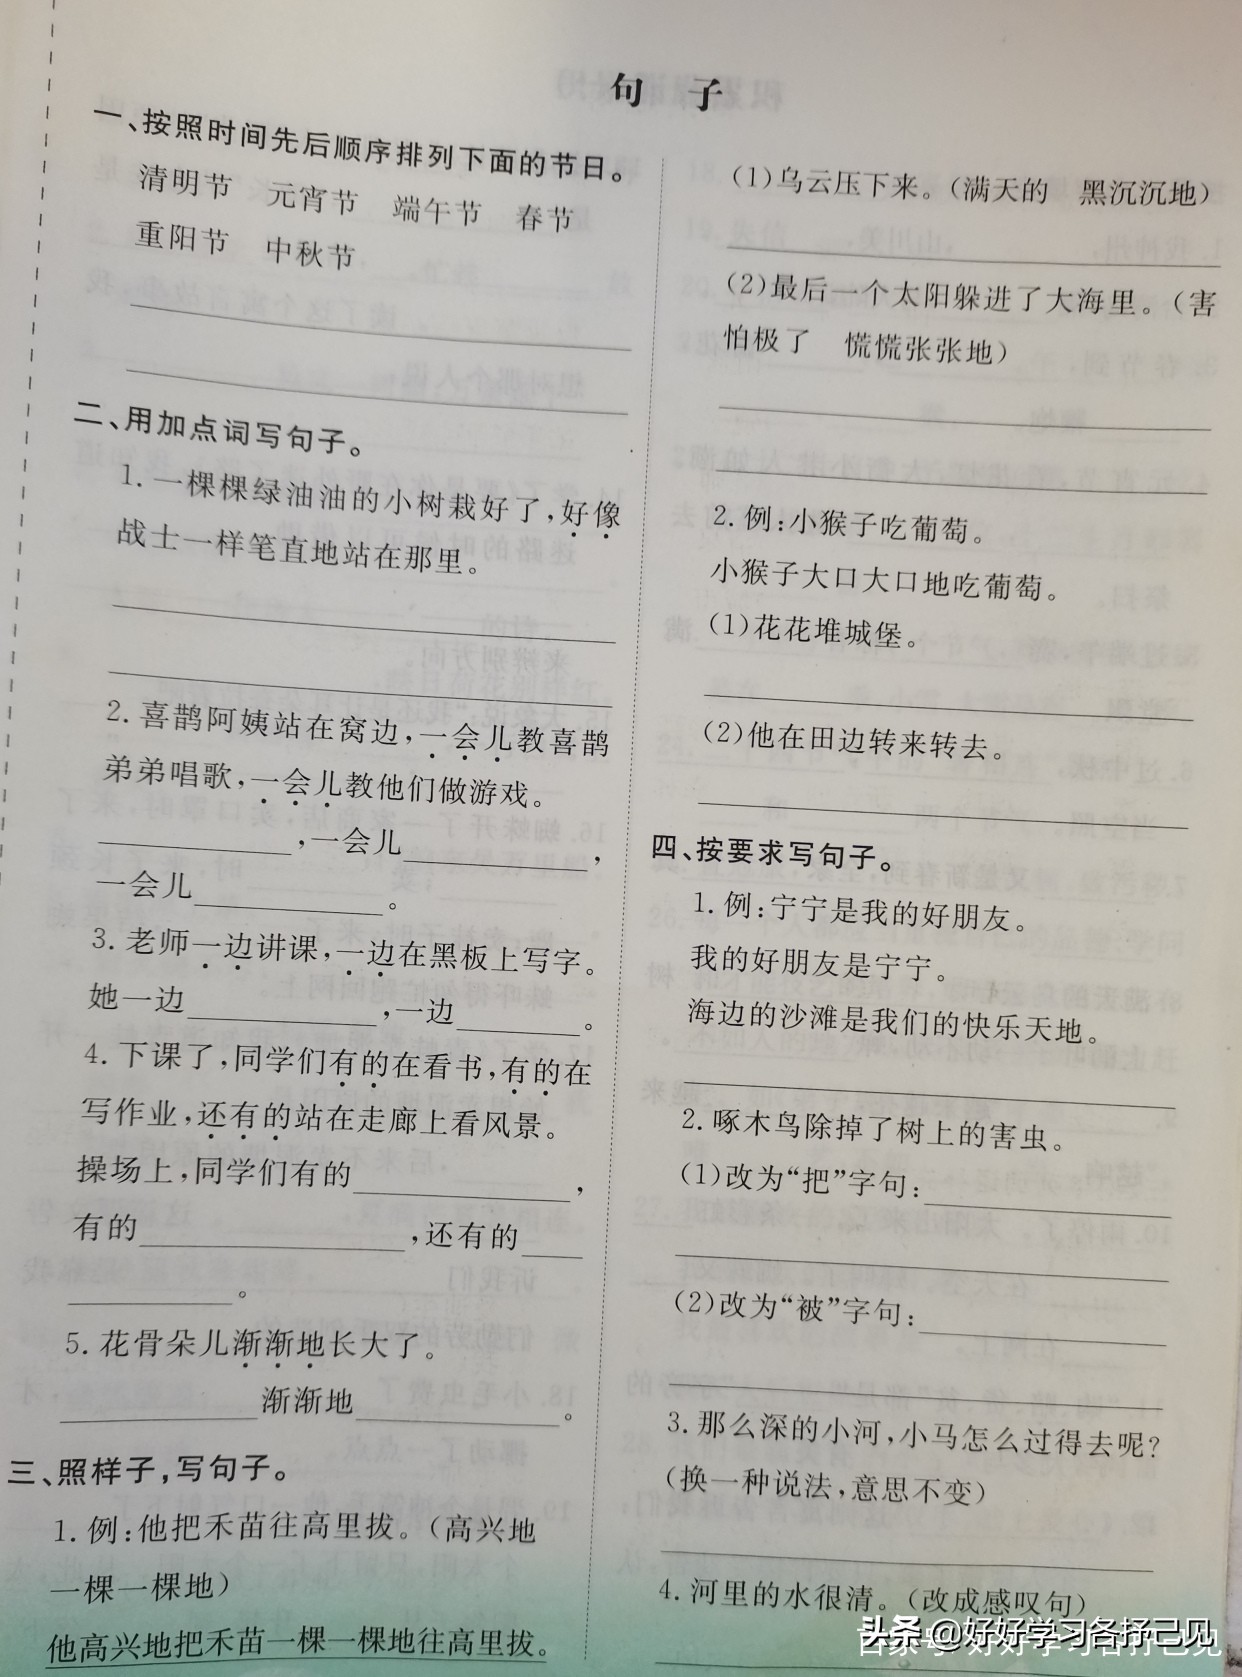 句 子
一、按照时间先后顺序排列下面的节日。
清明节 元宵节 端午节 春节
重阳节 中秋节
二、用加点词写句子。
1. 一棵棵绿油油的小树栽好了,好像
战士一样笔直地站在那里。
2. 喜鹊阿姨站在窝边,一会儿教喜鹊
弟弟唱歌,一会儿教他们做游戏。
,一会儿 ,
一会儿 。
3. 老师一边讲课,一边在黑板上写字。
她一边 ,一边 。
4. 下课了,同学们有的在看书,有的在
写作业,还有的站在走廊上看风景。
操场上,同学们有的 ,
有的 ,还有的
。
5. 花骨朵儿渐渐地长大了。
渐渐地 。
三、照样子,写句子。
1. 例:他把禾苗往高里拔。(高兴地
一棵一棵地)
他高兴地把禾苗一棵一棵地往高里拔。
(1)乌云压下来。(满天的 黑沉沉地)
(2)最后一个太阳躲进了大海里。(害
怕极了 慌慌张张地)
2. 例:小猴子吃葡萄。
小猴子大口大口地吃葡萄。
(1)花花堆城堡。
(2)他在田边转来转去。
四、按要求写句子。
1. 例:宁宁是我的好朋友。
我的好朋友是宁宁。
海边的沙滩是我们的快乐天地。
2. 啄木鸟除掉了树上的害虫。
(1)改为“把”字句:
(2)改为“被”字句:
3. 那么深的小河,小马怎么过得去呢?
(换一种说法,意思不变)
4. 河里的水很清。(改成感叹句)
头条 @好好学习各抒己见